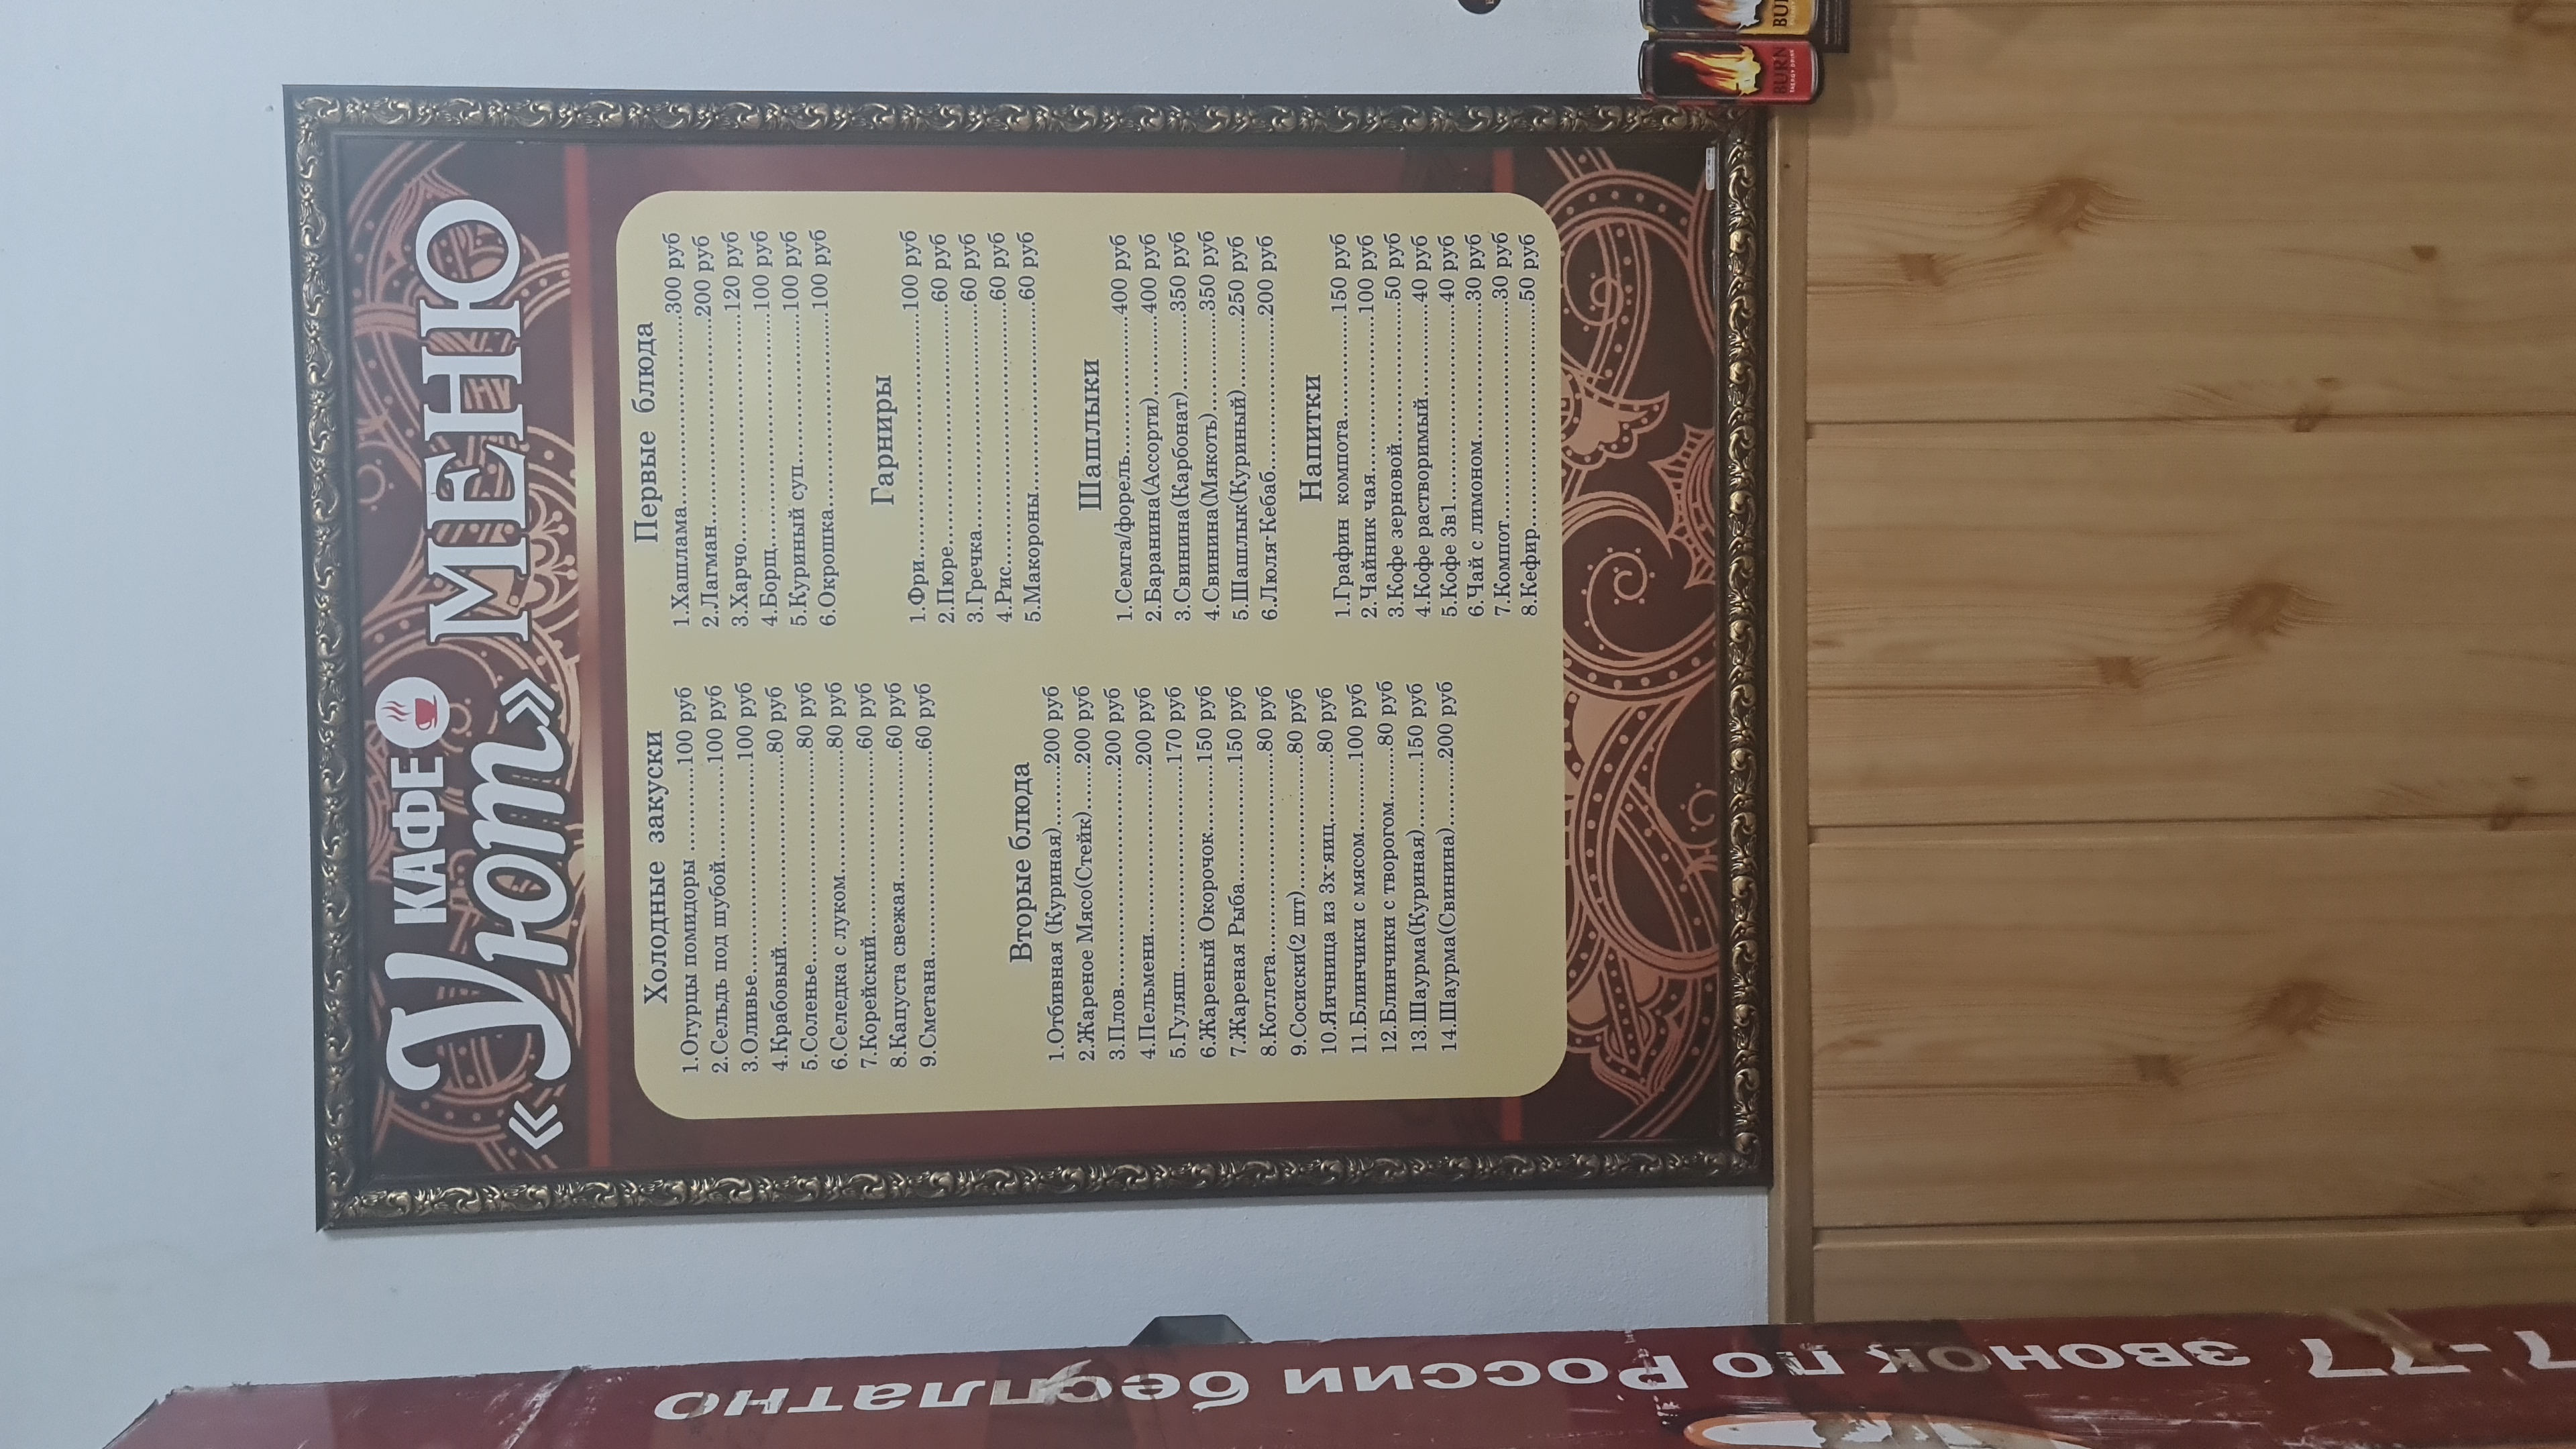 КАФЕ
«Уют» МЕНЮ
Холодные закуски
1.Огурцы помидоры ............100 руб
2.Сельдь под шубой............100 руб
3.Оливье..............................100 руб
4.Крабовый...........................80 руб
5.Соленье..............................80 руб
6.Селедка с луком.................80 руб
7.Корейский..........................60 руб
8.Капуста свежая..................60 руб
9.Сметана.............................60 руб
Вторые блюда
1.Отбивная (Куриная)........200 руб
2.Жареное Мясо(Стейк).....200 руб
3.Плов...............................200 руб
4.Пельмени........................200 руб
5.Гуляш.............................170 руб
6.Жареный Окорочок.........150 руб
7.Жареная Рыба................150 руб
8.Котлета............................80 руб
9.Сосиски(2 шт)..................80 руб
10.Яичница из 3х-яиц.........80 руб
11.Блинчики с мясом.........100 руб
12.Блинчики с творогом.......80 руб
13.Шаурма(Куриная).........150 руб
14.Шаурма(Свинина).........200 руб
Первые блюда
1.Хашлама.........................300 руб
2.Лагман...........................200 руб
3.Харчо.............................120 руб
4.Борщ..............................100 руб
5.Куриный суп...................100 руб
6.Окрошка.........................100 руб
Гарниры
1.Фри................................100 руб
2.Пюре................................60 руб
3.Гречка..............................60 руб
4.Рис...................................60 руб
5.Макороны.........................60 руб
Шашлыки
1.Семга/форель..................400 руб
2.Баранина(Ассорти)..........400 руб
3.Свинина(Карбонат).........350 руб
4.Свинина(Мякоть)............350 руб
5.Шашлык(Куриный).........250 руб
6.Люля-Кебаб....................200 руб
Напитки
1.Графин компота..............150 руб
2.Чайник чая.....................100 руб
3.Кофе зерновой..................50 руб
4.Кофе растворимый............40 руб
5.Кофе 3в1..........................40 руб
6.Чай с лимоном..................30 руб
7.Компот.............................30 руб
8.Кефир..............................50 руб
BURN
ENERGY DRINK
7-77 звонок по России бесплатно